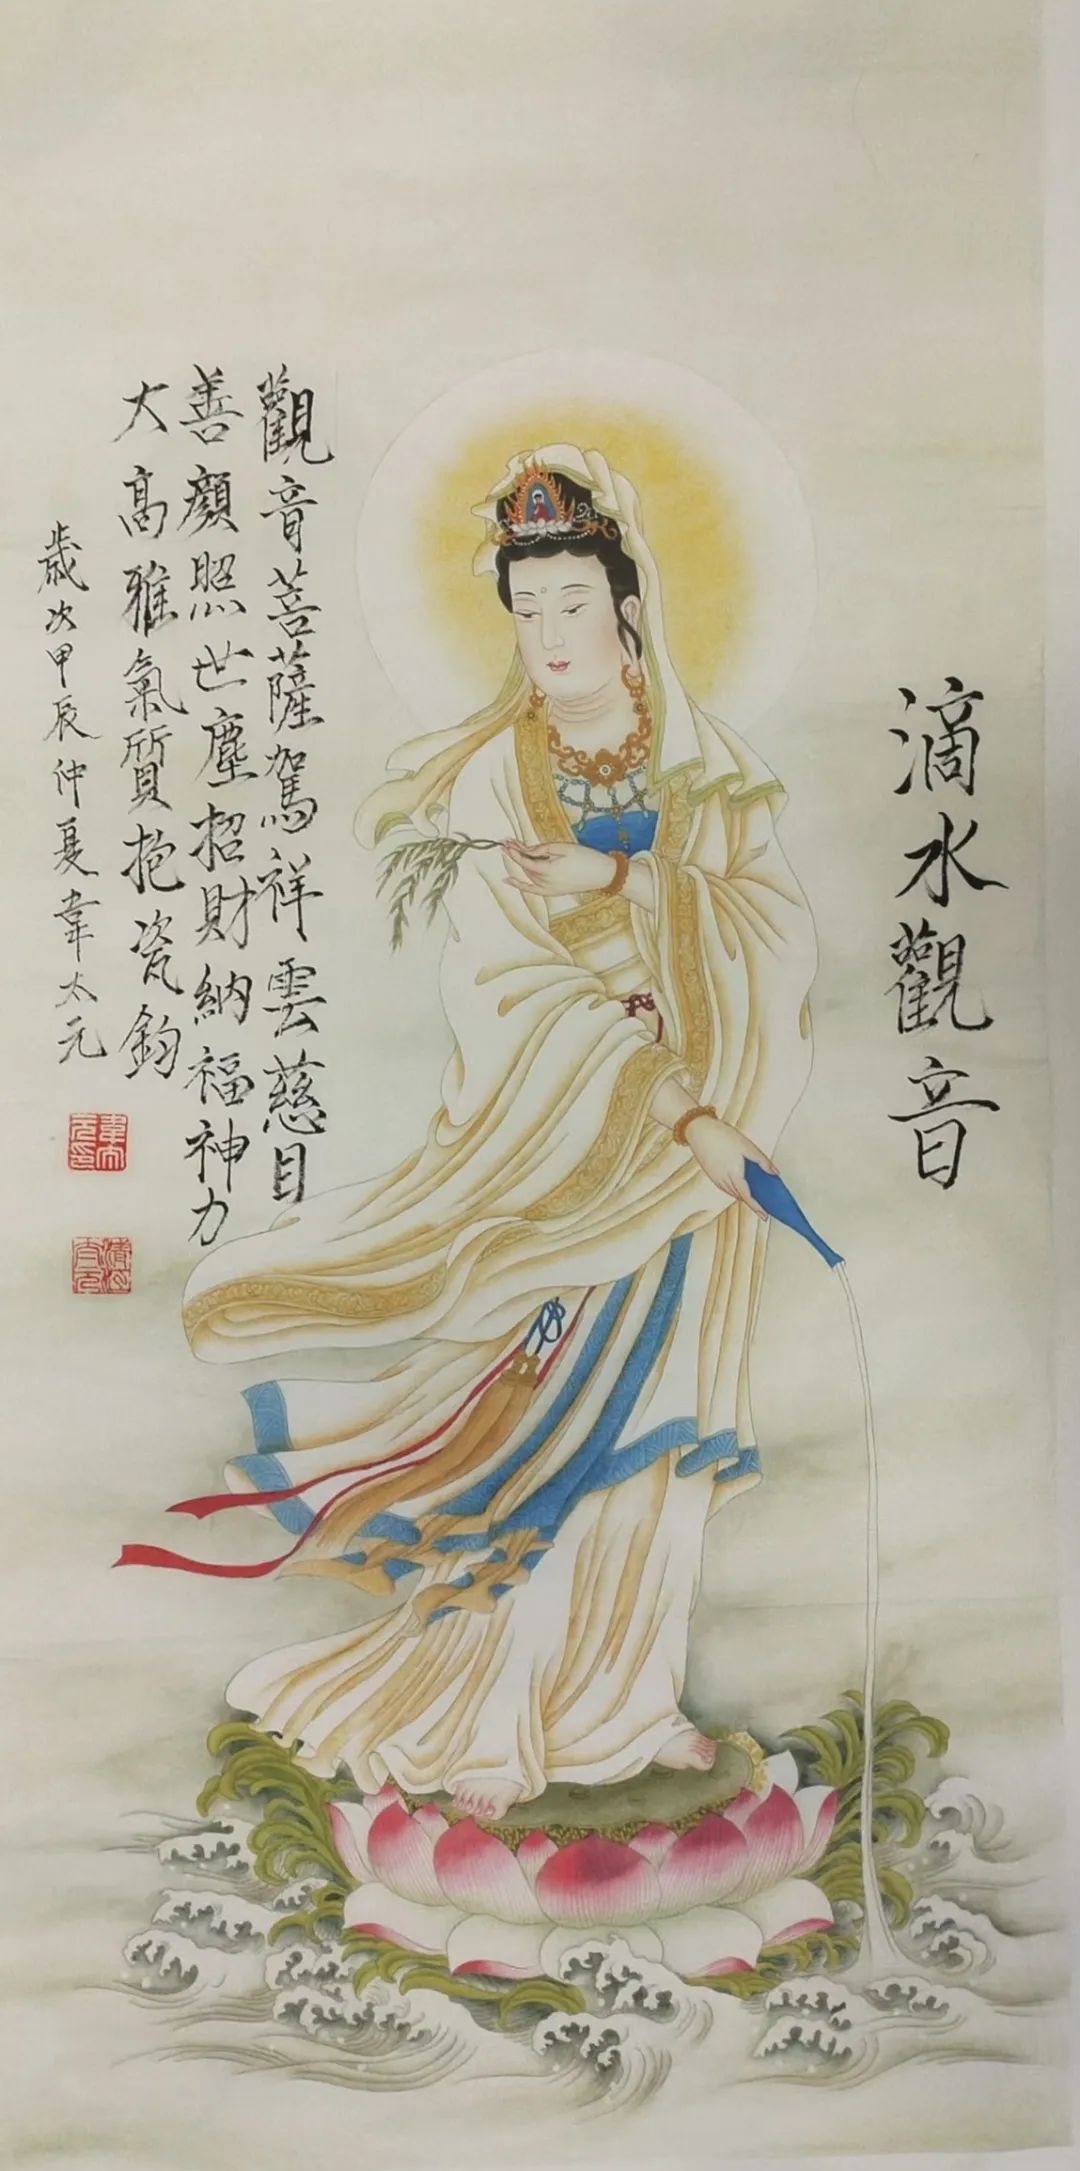 滴水觀音
觀音菩薩駕祥雲慈目
善顏照世塵招財納福神力
大高雅氣質抱瓷鈞
歲次甲辰仲夏韋太元